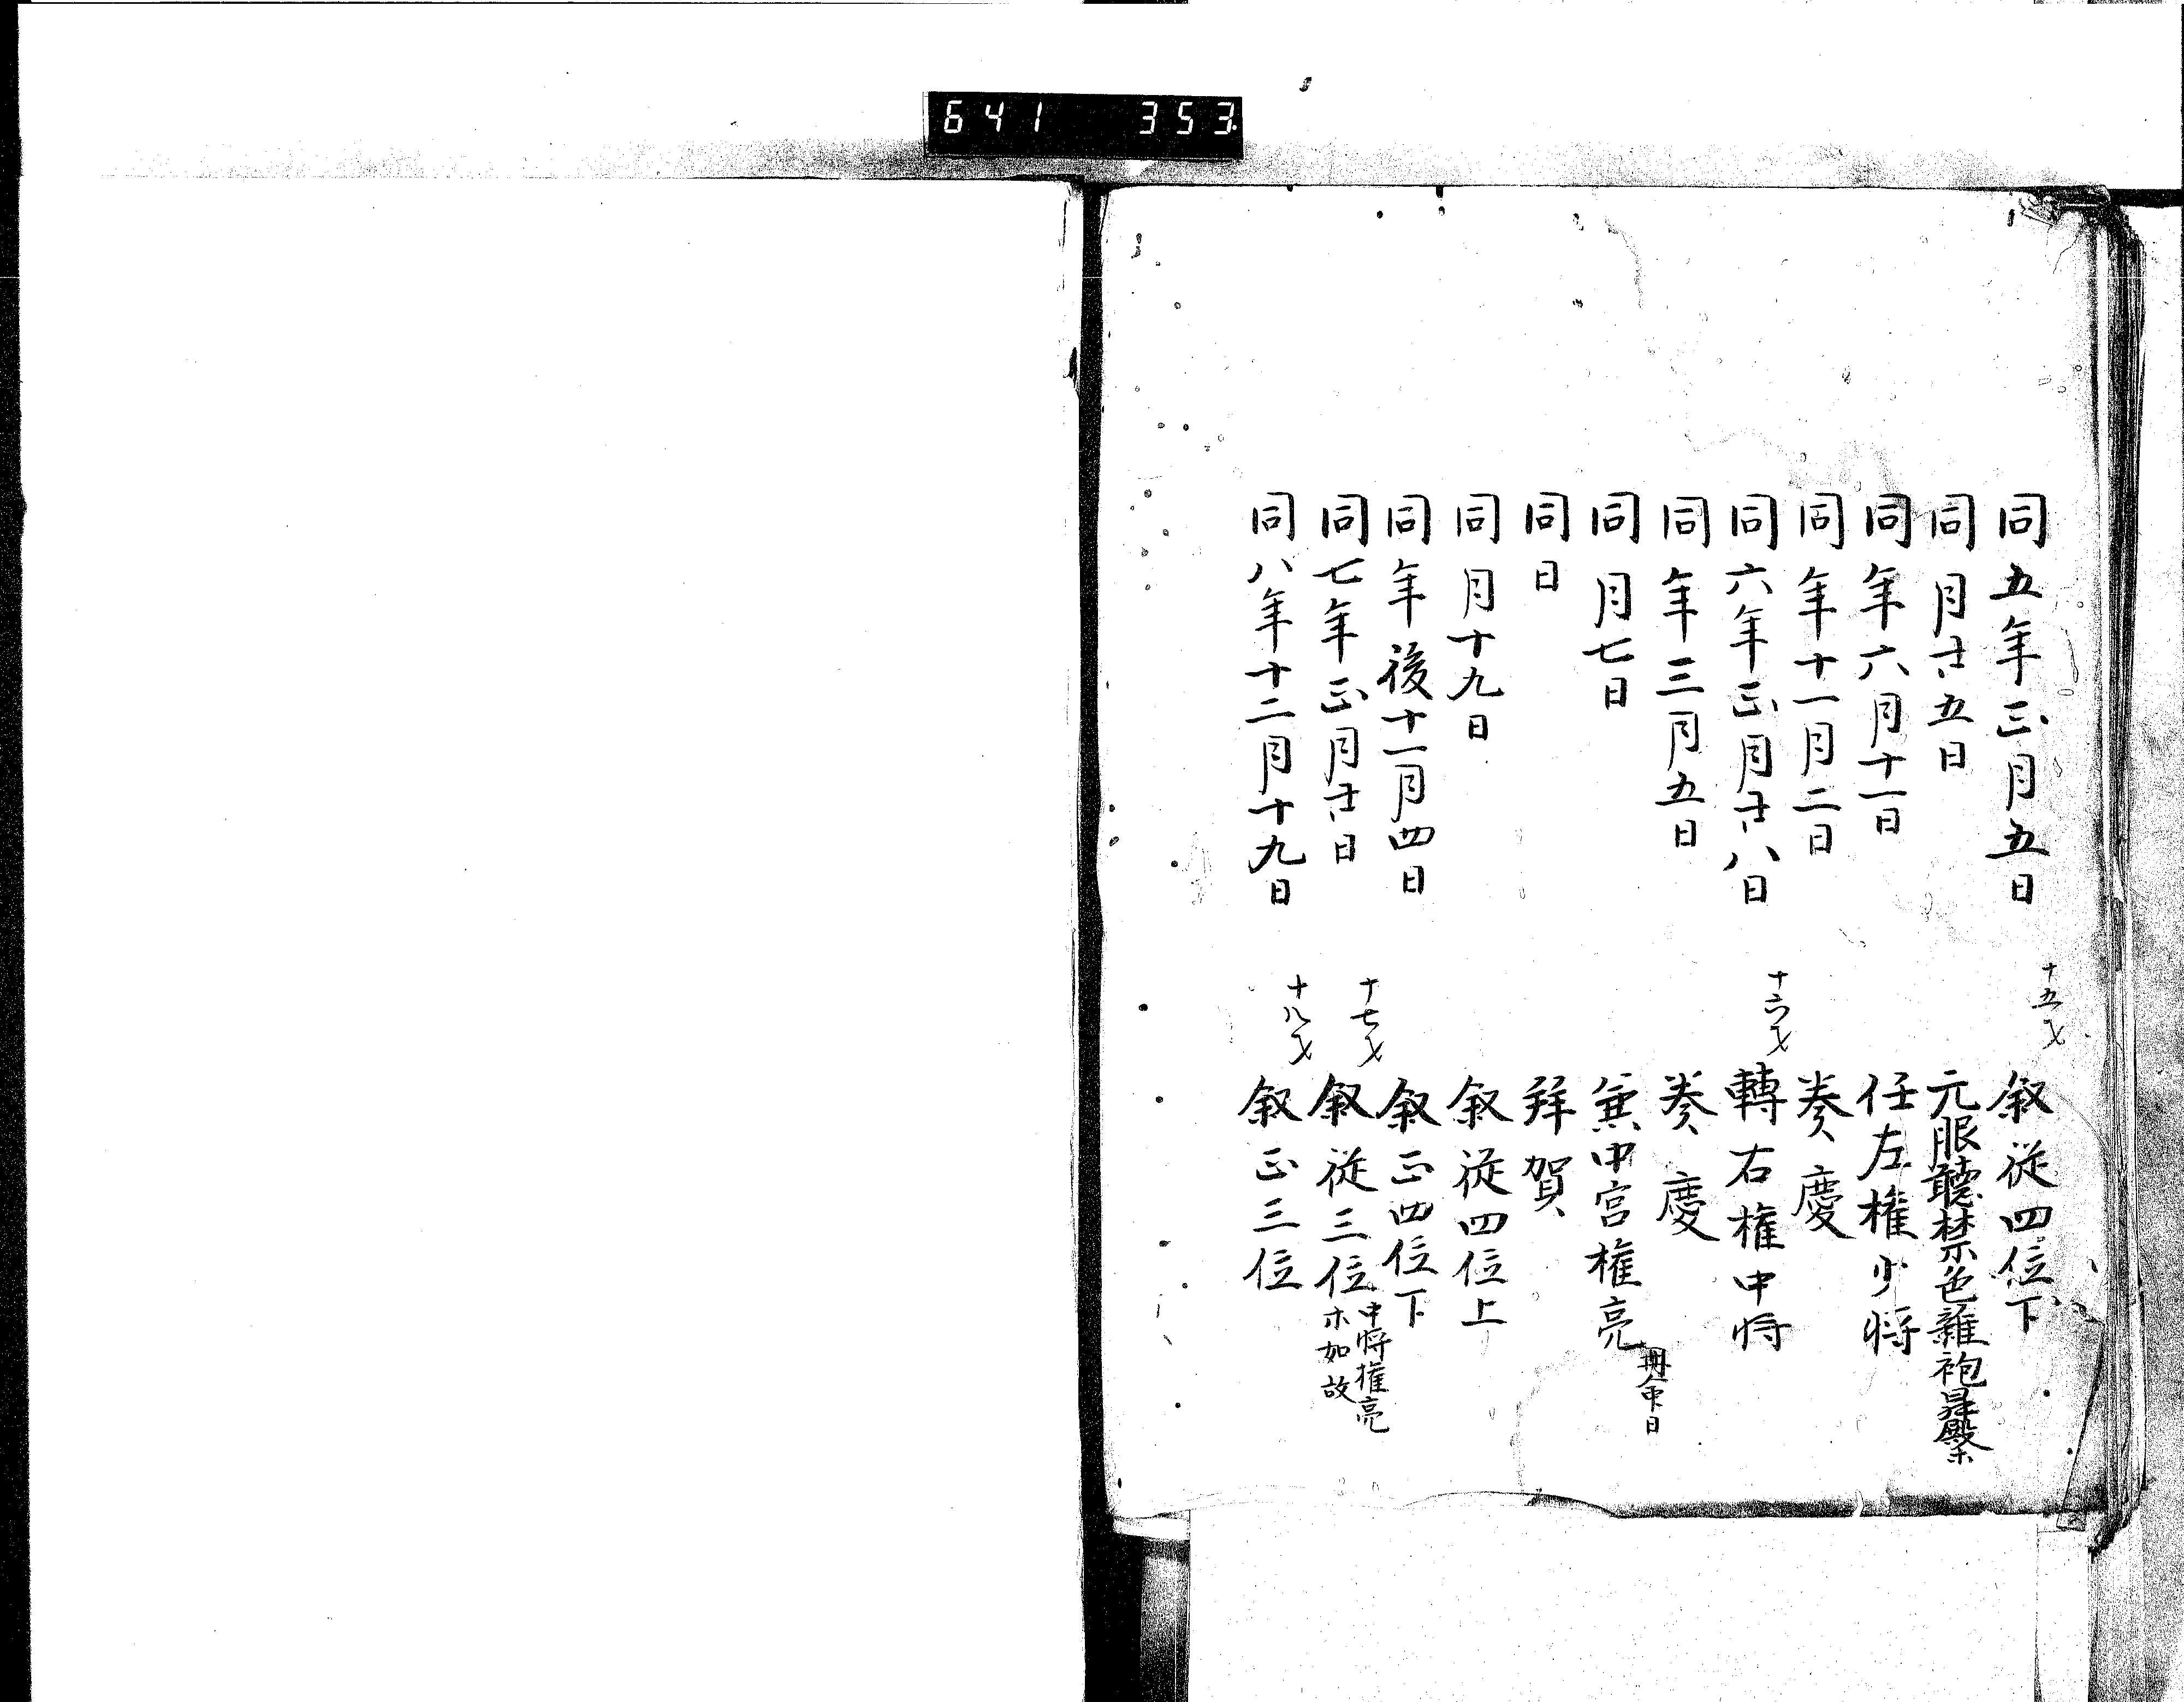 641 353
同五年正月五日 十五才 叙従四位下
同月廿五日 元服聴禁色雑袍昇殿
同年六月十一日 任左権少将
同年十一月二日 奏慶
同六年正月廿八日 十六才 轉右権中将
同年三月五日 奏慶
同月七日 兼中宮権亮 冊命日
同日 拜賀
同月十九日 叙従四位上
同年後十一月四日 叙正四位下
同七年正月廿日 十七才 叙従三位 中将権亮
木如故
同八年十二月十九日 十八才 叙正三位